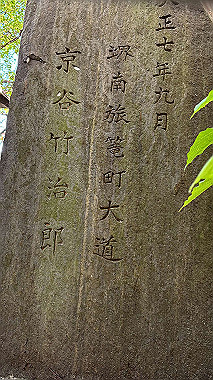 大正七年九月
堺南旅篭町大道
京谷竹治郎